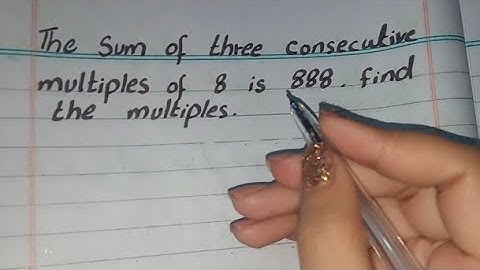 The Sum of three consecutive
multiples of 8 is 888. find
the multiples.